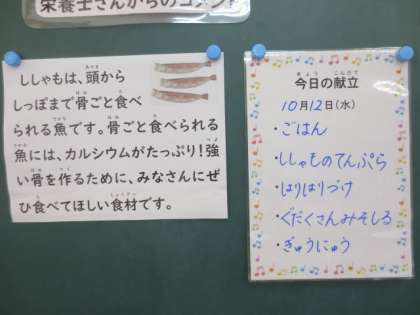 栄養士さんからのコメント
ししゃもは、頭から
しっぽまで骨ごと食べ
られる魚です。骨ごと食べられる
魚には、カルシウムがたっぷり！強
い骨を作るために、みなさんにぜ
ひ食べてほしい食材です。
今日の献立
10月12日(水)
・ごはん
・ししゃものてんぷら
・はりはりづけ
・ぐだくさんみそしる
・ぎゅうにゅう